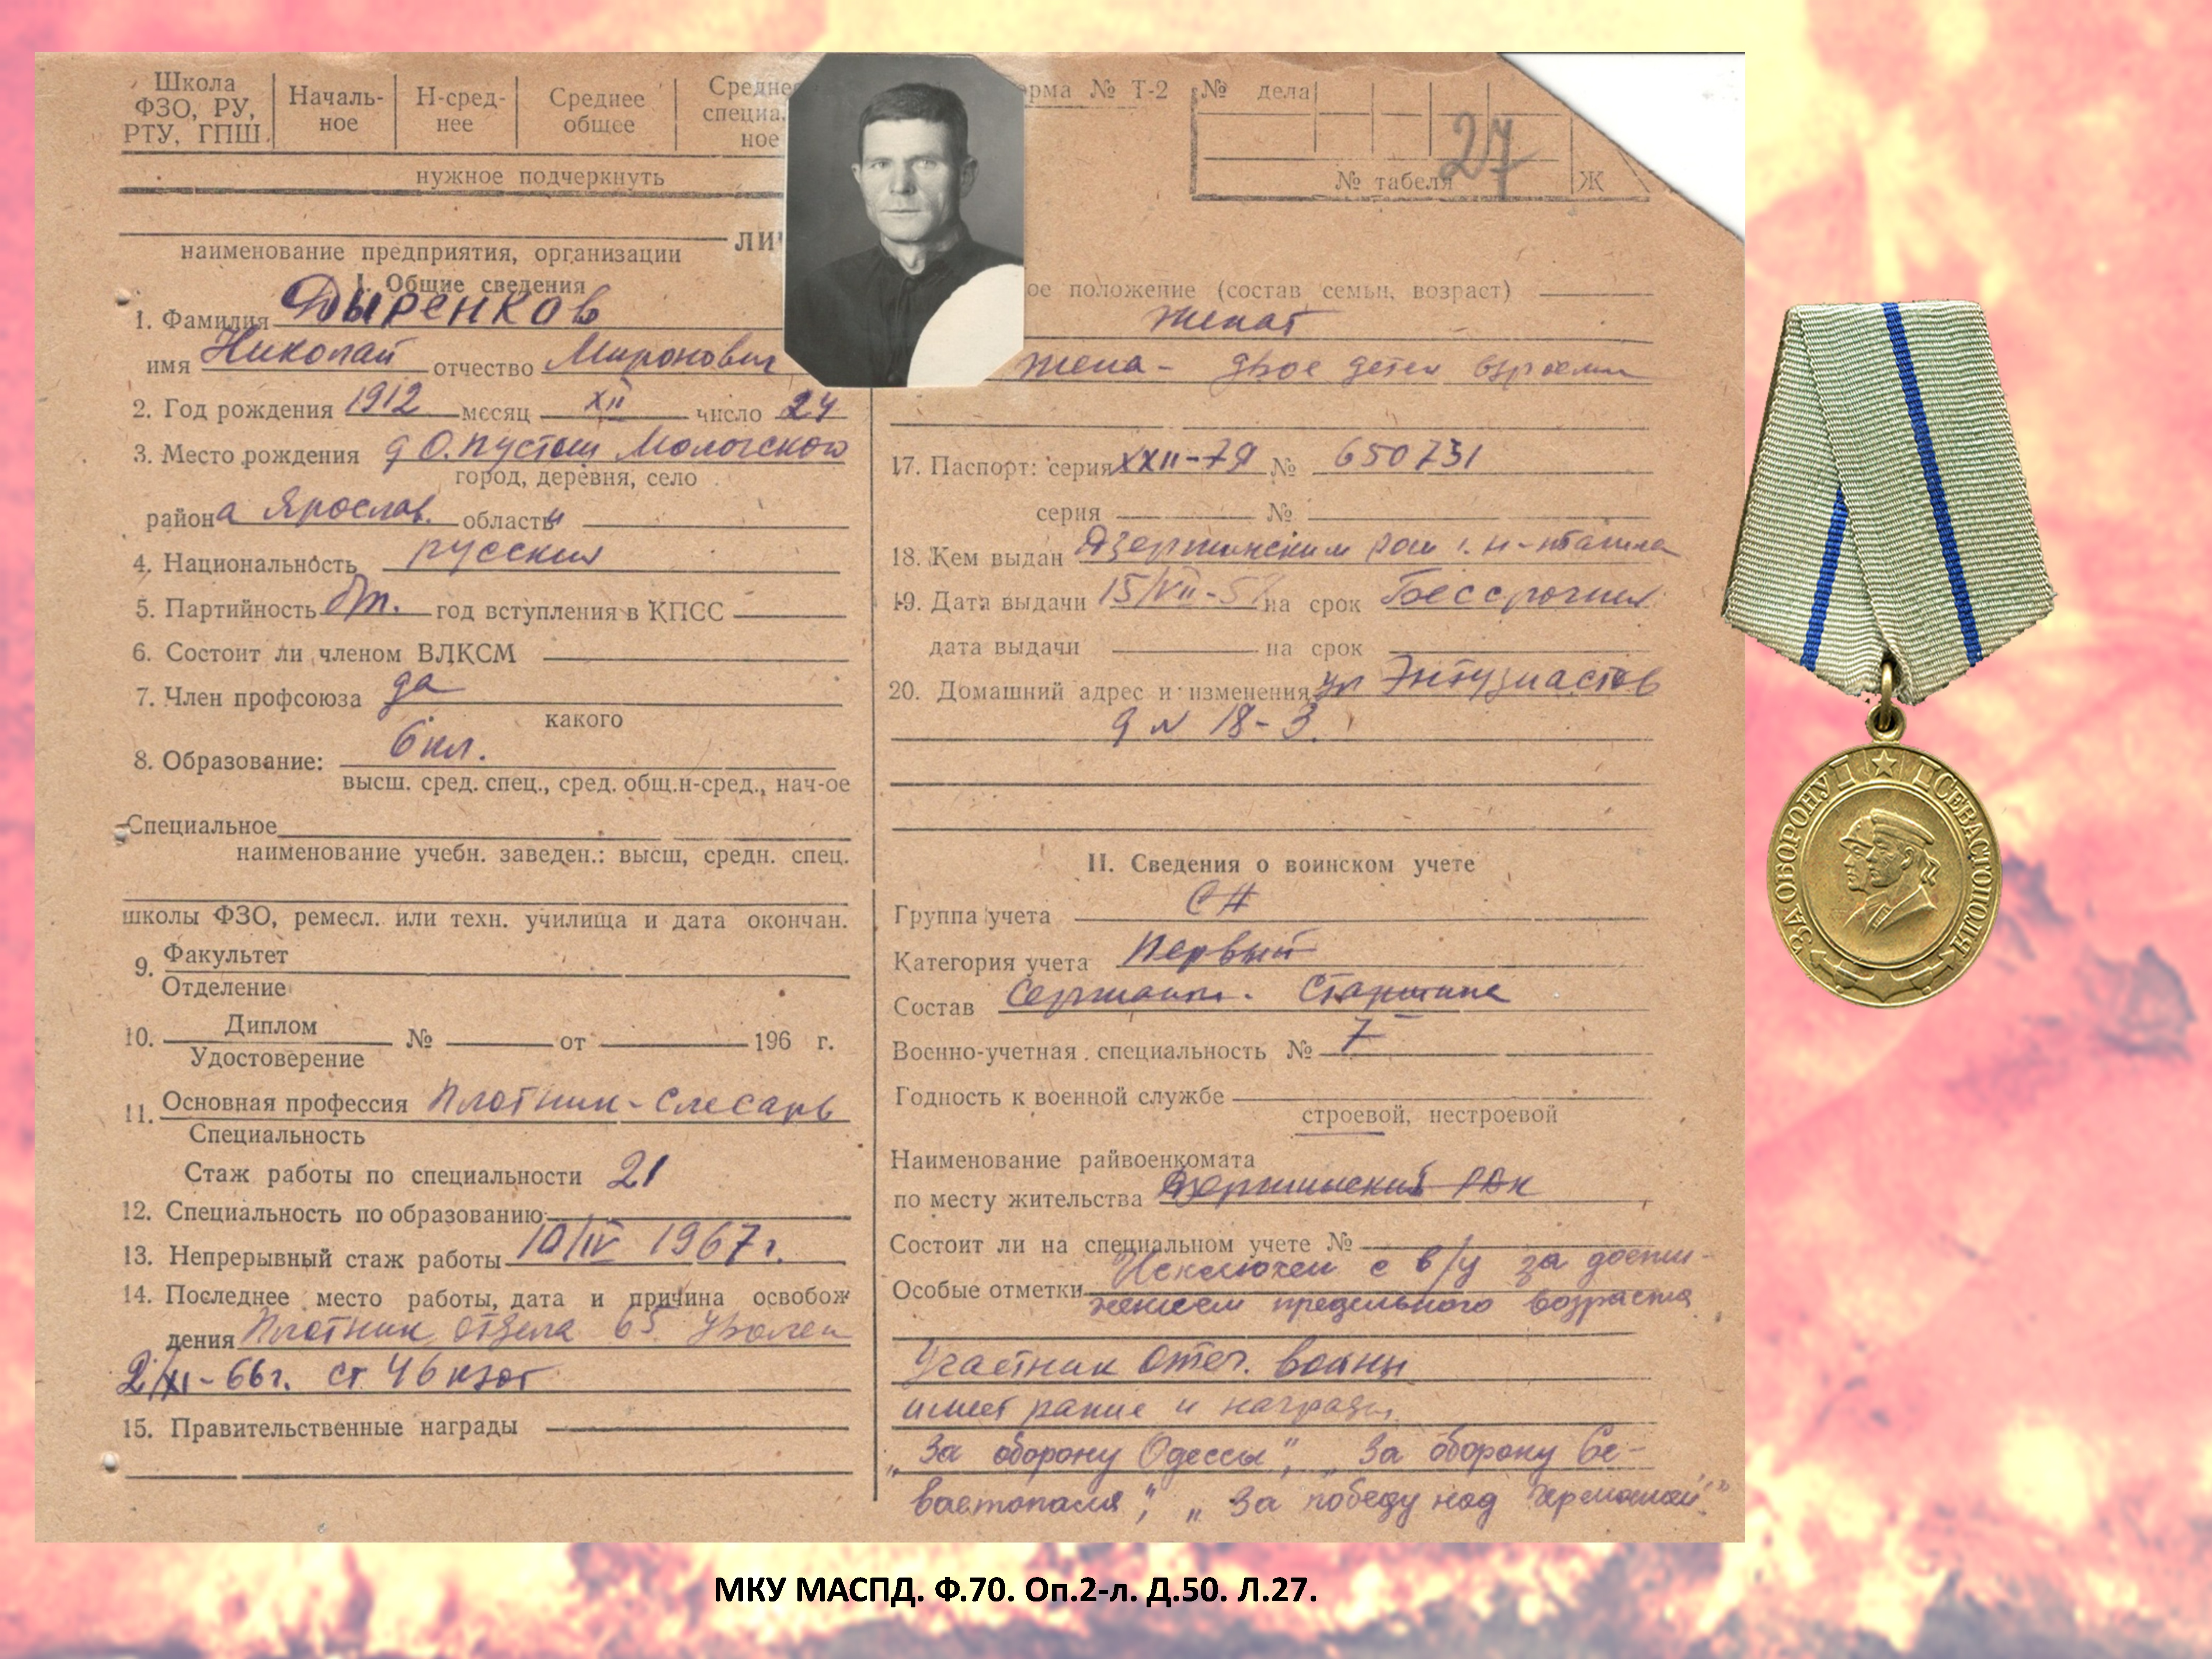 Школа ФЗО, РУ, РТУ, ГПШ. Началь-ное Н-сред-нее Среднее общее Средне специа ное
нужное подчеркнуть
орма № Т-2 № дела
27
№ табеля Ж
наименование предприятия, организации
ЛИ
I. Общие сведения
1. Фамилия Дыренков
имя Николай отчество Миронович
2. Год рождения 1912 месяц XII число 24
3. Место рождения д О. Пустош Мологского
город, деревня, село
района Ярослав. области
4. Национальность русский
5. Партийность б/п. год вступления в КПСС
6. Состоит ли членом ВЛКСМ
7. Член профсоюза да
какого
8. Образование: 6 кл.
высш. сред. спец., сред. общ.н-сред., нач-ое
Специальное
наименование учебн. заведен.: высш, средн. спец.
школы ФЗО, ремесл. или техн. училища и дата окончан.
9. Факультет
Отделение
10. Диплом № от 196 г.
Удостоверение
11. Основная профессия Плотник-слесарь
Специальность
Стаж работы по специальности 21
12. Специальность по образованию
13. Непрерывный стаж работы 10/IV 1967 г.
14. Последнее место работы, дата и причина освобож
дения Плотник отдела 65 уволен
2/XI-66г. ст 46 кзот
15. Правительственные награды
ое положение (состав семьи, возраст)
женат
жена - двое детей взрослые
17. Паспорт: серия XXII-ТЯ № 650731
серия №
18. Кем выдан Дзержинским ром г. Н-Тагила
19. Дата выдачи 15/VII-5 на срок Бессрочный
дата выдачи на срок
20. Домашний адрес и изменения ул Энтузиастов
д № 18-3.
II. Сведения о воинском учете
Группа учета СА
Категория учета Первый
Состав Сержант. Старшина
Военно-учетная специальность № 7
Годность к военной службе
строевой, нестроевой
Наименование райвоенкомата
по месту жительства Дзержинский РВК
Состоит ли на специальном учете №
Особые отметки Исключен с в/у за дости-
жением предельного возраста
Участник Отеч. войны
имеет рание и награды
„За оборону Одессы", „За оборону Се-
вастополя", „За победу над Германией"
ЗА ОБОРОНУ СЕВАСТОПОЛЯ
МКУ МАСПД. Ф.70. Оп.2-л. Д.50. Л.27.